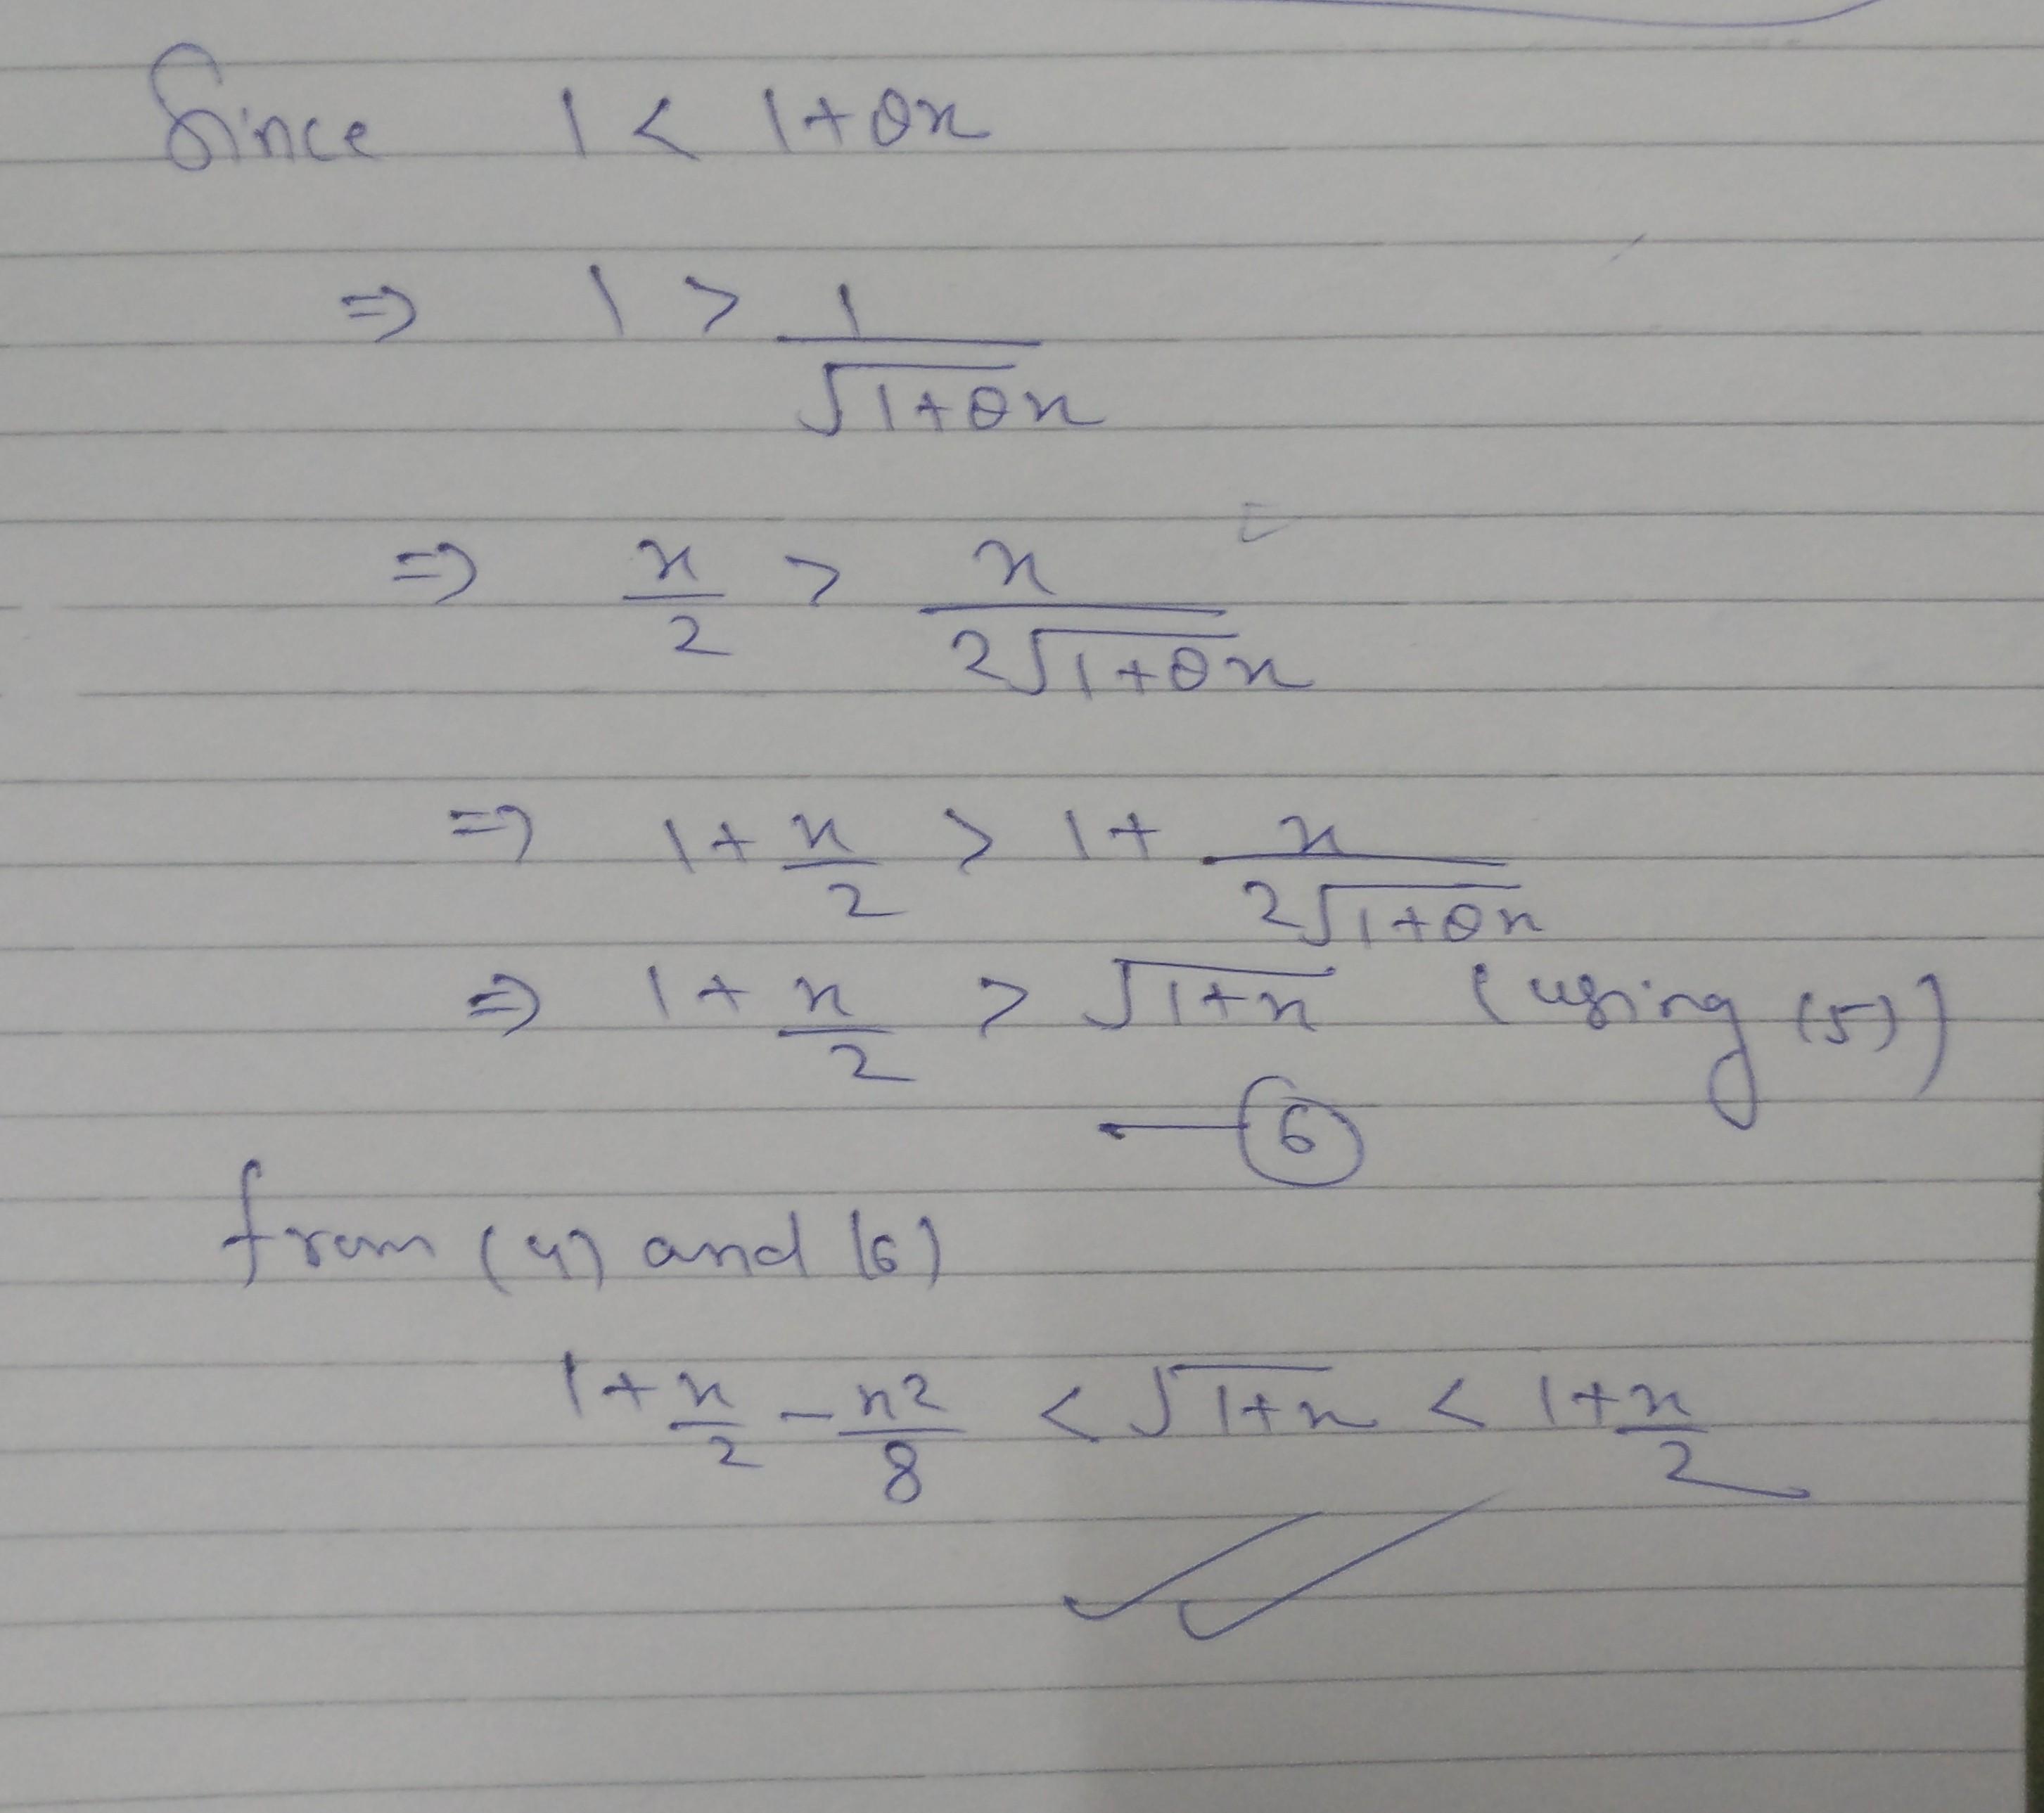 Since 1 < 1+θx
⇒ 1 > 1/√(1+θx)
⇒ x/2 > x/(2√(1+θx))
⇒ 1+x/2 > 1+x/(2√(1+θx))
⇒ 1+x/2 > √(1+x) (using (5))
—⑥
from (4) and (6)
1+x/2-x²/8 < √(1+x) < 1+x/2